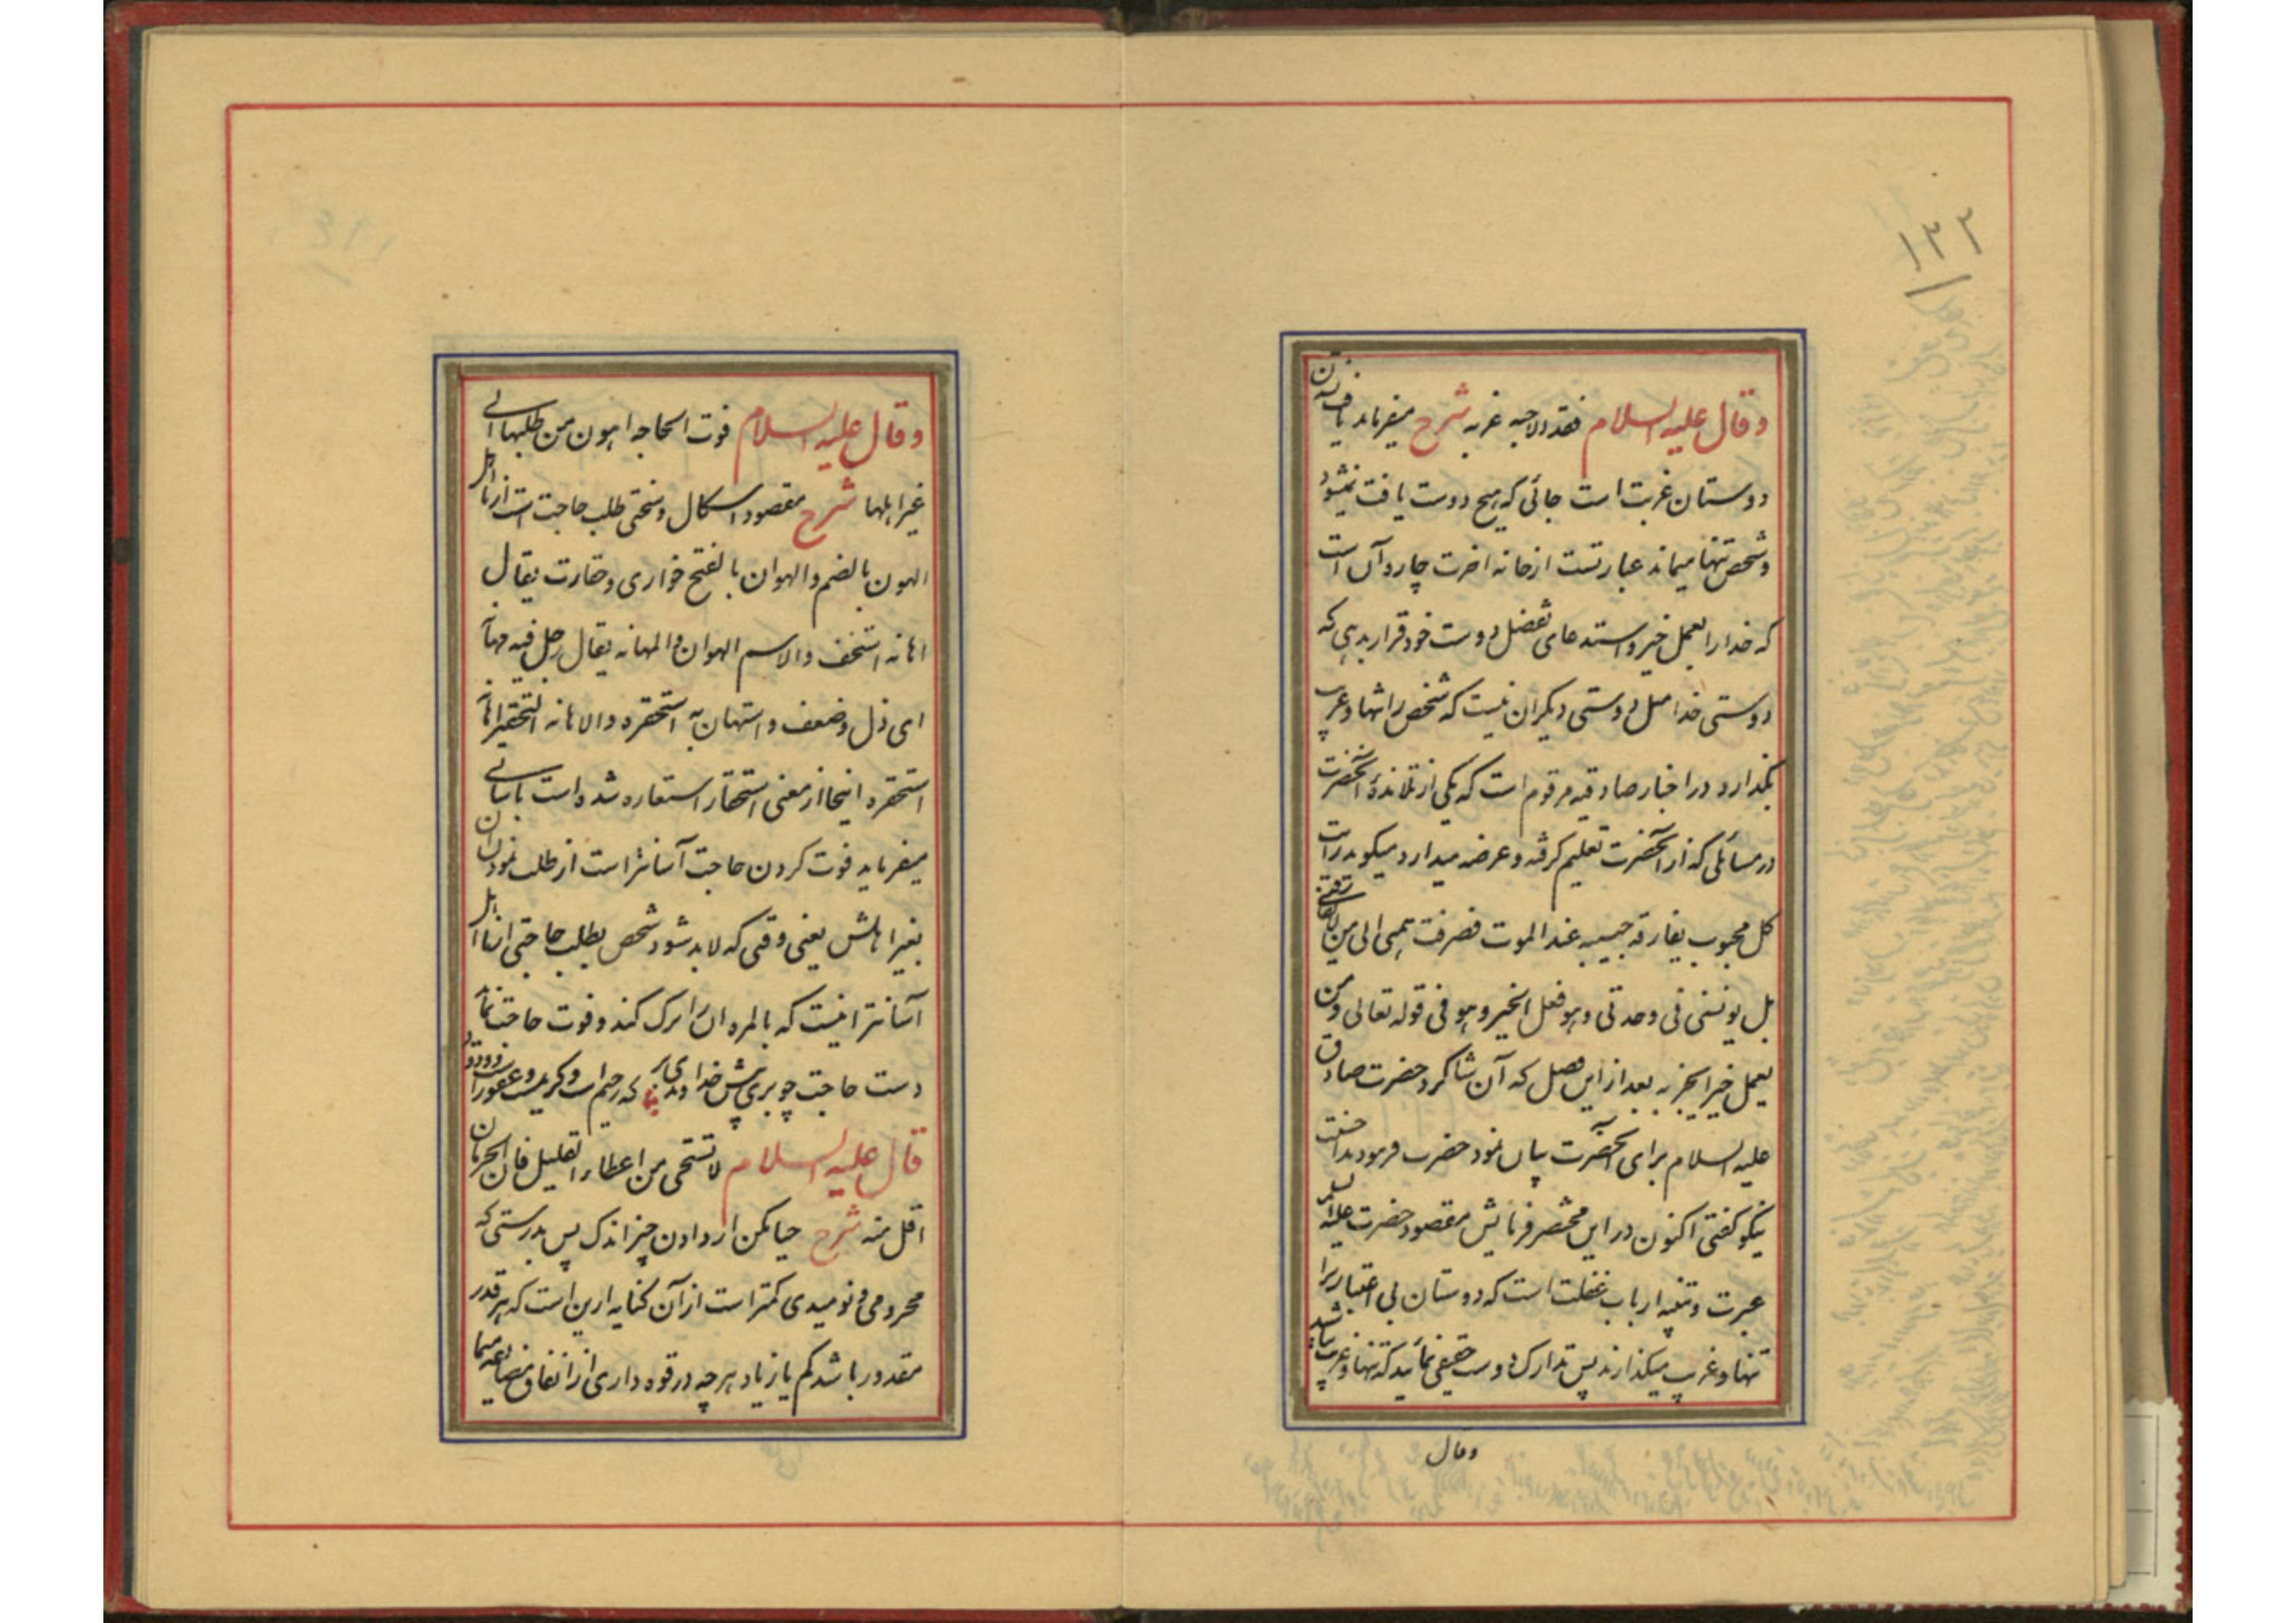 ۱۳۲
وقال علیه السلام فقد الاحبه غربه شرح میفرماید یافت نشدن
دوستان غربت است جائی که هیچ دوست یافت نمیشود
و شخص تنها میماند عبارتست از خانه اخرت چاره آن است
که خدا را بعمل خیر و استدعای تفضل دوست خود قرار بدهی که
دوستی خدا مثل دوستی دیگران نیست که شخص را تنها و غریب
بگذارد در اخبار صادقیه مرقوم است که یکی از تلامذۀ آنحضرت
در مسائلی که از آنحضرت تعلیم گرفته و عرضه میدارد میگوید رایت
کل محبوب یفارقه حبیبه عند الموت فصرفت همی الی من لا یفارقنی
بل یونسنی فی وحدتی و هو فعل الخیر و هو فی قوله تعالی و من
یعمل خیرا یجز به بعد از این فصل که آن شاگرد حضرت صادق
علیه السلام برای آنحضرت بیان نمود حضرت فرمودند احسنت
نیکو گفتی اکنون در این مختصر فرمایش مقصود حضرت علیه السلام
عبرت و تنبیه ارباب غفلت است که دوستان بی اعتبار ترا
تنها و غریب میگذارند پس تدارک دوست حقیقی نمائید که تنها و غریب نباشید
وقال
وقال علیه السلام فوت الحاجه اهون من طلبها الی
غیر اهلها شرح مقصود اشکال و سختی طلب حاجت است از نا اهل
الهون بالضم والهوان بالفتح خواری و حقارت یقال
اهانه استخف والاسم الهوان والمهانه یقال رجل فیه مهانه
ای ذل و ضعف و استهان به استحقره والاهانه التحقیر اهانه
استحقره اینجا از معنی استحقار استعاره شده است باسانی
میفرماید فوت کردن حاجت آسانتر است از طلب نمودن ان
بغیر اهلش یعنی وقتی که لابد شود شخص بطلب حاجتی از نا اهل
آسانتر اینست که بالمره ان را ترک کند و فوت حاجت نماید
دست حاجت چو بری پیش خداوندی بر که رحیم است و کریمست و غفور است و ودود
قال علیه السلام لا تستحی من اعطاء القلیل فان الحرمان
اقل منه شرح حیا مکن از دادن چیز اندک پس بدرستی که
محرومی و نومیدی کمتر است از آن کنایه از این است که هر قدر
مقدور باشد کم یا زیاد هر چه در قوه داری از انفاق مضایقه منما